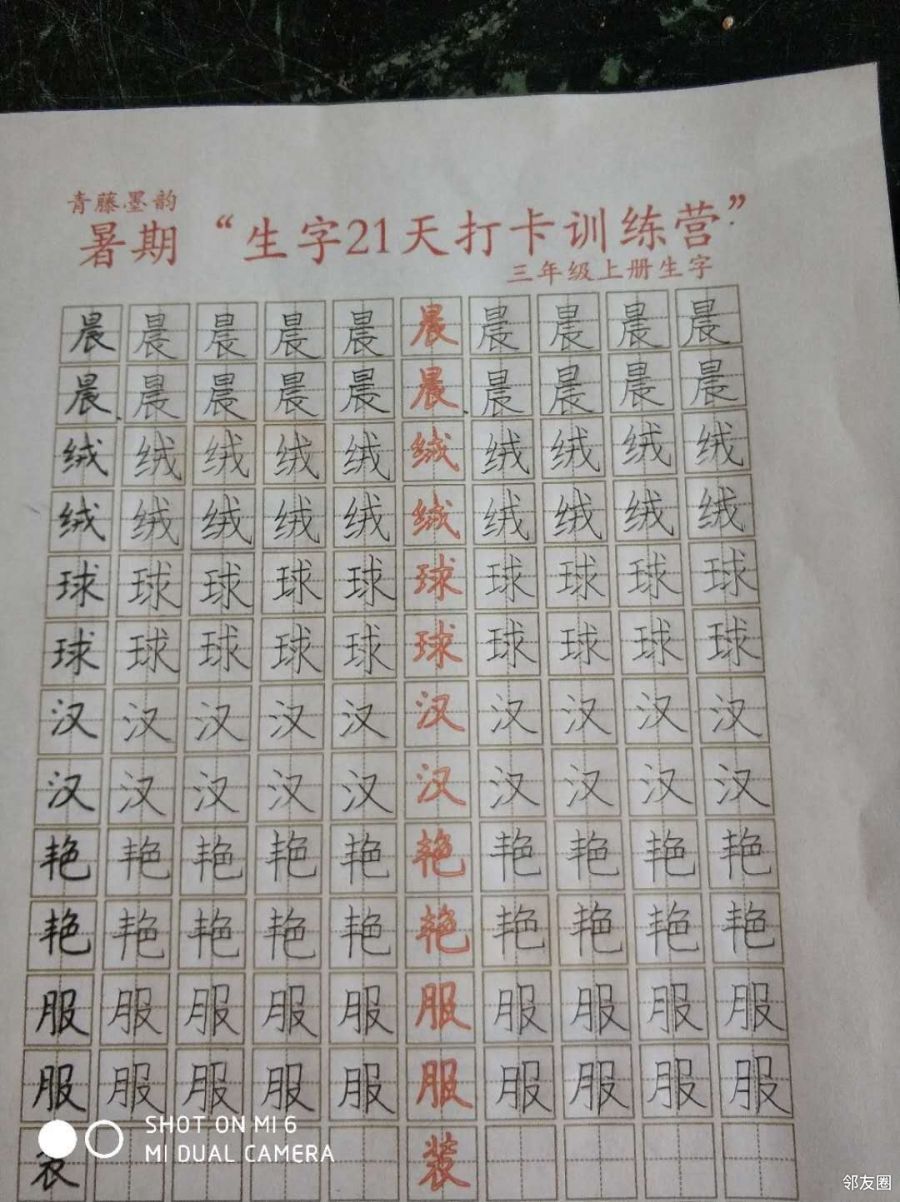 青藤墨韵
暑期“生字21天打卡训练营”
三年级上册生字
晨晨晨晨晨晨晨晨晨晨
晨晨晨晨晨晨晨晨晨晨
绒绒绒绒绒绒绒绒绒绒
绒绒绒绒绒绒绒绒绒绒
球球球球球球球球球球
球球球球球球球球球球
汉汉汉汉汉汉汉汉汉汉
汉汉汉汉汉汉汉汉汉汉
艳艳艳艳艳艳艳艳艳艳
艳艳艳艳艳艳艳艳艳艳
服服服服服服服服服服
服服服服服服服服服服
装装
SHOT ON MI 6
MI DUAL CAMERA
邻友圈